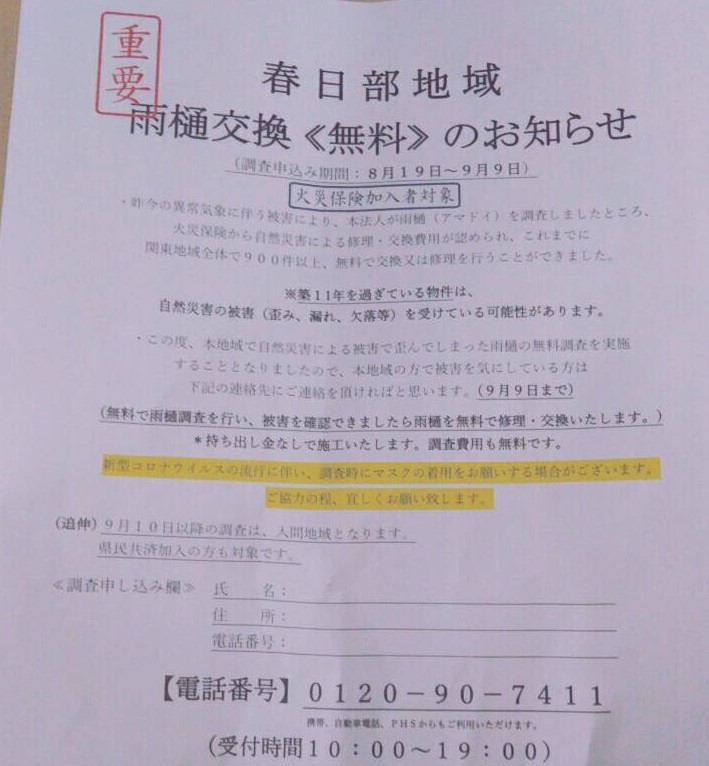 重要
春日部地域
雨樋交換《無料》のお知らせ
（調査申込み期間：８月１９日～９月９日）
火災保険加入者対象
・昨今の異常気象に伴う被害により、本法人が雨樋（アマドイ）を調査しましたところ、
火災保険から自然災害による修理・交換費用が認められ、これまでに
関東地域全体で９００件以上、無料で交換又は修理を行うことができました。
※築１１年を過ぎている物件は、
自然災害の被害（歪み、漏れ、欠落等）を受けている可能性があります。
・この度、本地域で自然災害による被害で歪んでしまった雨樋の無料調査を実施
することとなりましたので、本地域の方で被害を気にしている方は
下記の連絡先にご連絡を頂ければと思います。（９月９日まで）
（無料で雨樋調査を行い、被害を確認できましたら雨樋を無料で修理・交換いたします。）
＊持ち出し金なしで施工いたします。調査費用も無料です。
新型コロナウイルスの流行に伴い、調査時にマスクの着用をお願いする場合がございます。
ご協力の程、宜しくお願い致します。
（追伸）９月１０日以降の調査は、入間地域となります。
県民共済加入の方も対象です。
≪調査申し込み欄≫ 氏　　名：
住　　所：
電話番号：
【電話番号】０１２０－９０－７４１１
携帯、自動車電話、ＰＨＳからもご利用いただけます。
（受付時間１０：００～１９：００）